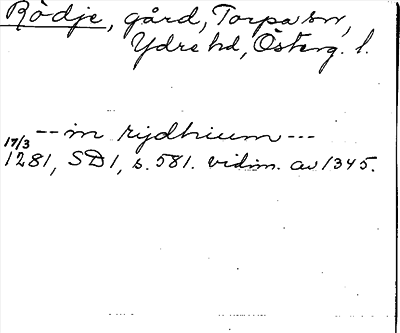 Rödje, gård, Torpa sn,
Ydre hd, Österg. l.
-- in rydhium ---
17/3
1281, SD 1, s. 581. vidim. av 1345.